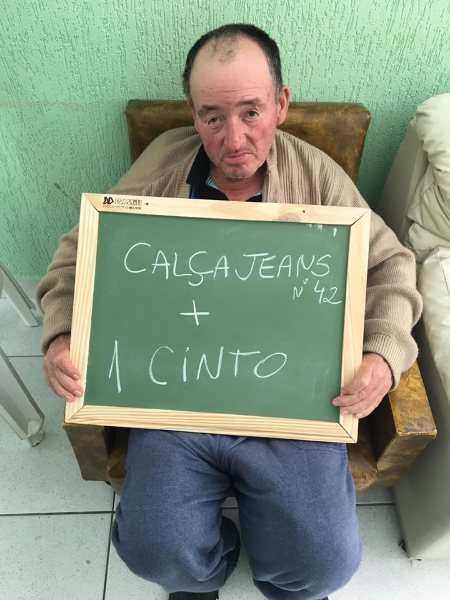 CALÇA JEANS
Nº 42
+
1 CINTO